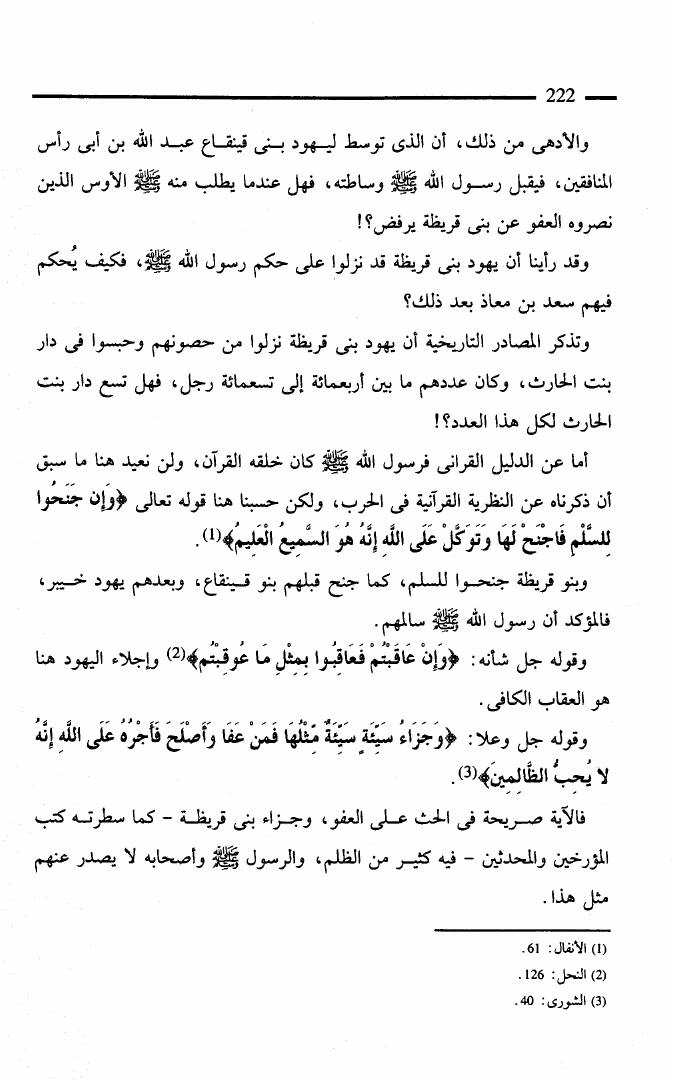 222
والأدهى من ذلك، أن الذى توسط ليهود بنى قينقاع عبد الله بن أبى رأس
المنافقين، فيقبل رسول الله ﷺ وساطته، فهل عندما يطلب منه ﷺ الأوس الذين
نصروه العفو عن بنى قريظة يرفض؟!
وقد رأينا أن يهود بنى قريظة قد نزلوا على حكم رسول الله ﷺ، فكيف يُحكم
فيهم سعد بن معاذ بعد ذلك؟
وتذكر المصادر التاريخية أن يهود بنى قريظة نزلوا من حصونهم وحبسوا فى دار
بنت الحارث، وكان عددهم ما بين أربعمائة إلى تسعمائة رجل، فهل تسع دار بنت
الحارث لكل هذا العدد؟!
أما عن الدليل القرانى فرسول الله ﷺ كان خلقه القرآن، ولن نعيد هنا ما سبق
أن ذكرناه عن النظرية القرآنية فى الحرب، ولكن حسبنا هنا قوله تعالى ﴿وَإِن جَنَحُوا
لِلسَّلْمِ فَاجْنَحْ لَهَا وَتَوَكَّلْ عَلَى اللَّهِ إِنَّهُ هُوَ السَّمِيعُ الْعَلِيمُ﴾(1).
وبنو قريظة جنحوا للسلم، كما جنح قبلهم بنو قينقاع، وبعدهم يهود خيبر،
فالمؤكد أن رسول الله ﷺ سالمهم.
وقوله جل شأنه: ﴿وَإِنْ عَاقَبْتُمْ فَعَاقِبُوا بِمِثْلِ مَا عُوقِبْتُم﴾(2) وإجلاء اليهود هنا
هو العقاب الكافى.
وقوله جل وعلا: ﴿وَجَزَاءُ سَيِّئَةٍ سَيِّئَةٌ مِّثْلُهَا فَمَنْ عَفَا وَأَصْلَحَ فَأَجْرُهُ عَلَى اللَّهِ إِنَّهُ
لا يُحِبُّ الظَّالِمِينَ﴾(3).
فالآية صريحة فى الحث على العفو، وجزاء بنى قريظة - كما سطرته كتب
المؤرخين والمحدثين - فيه كثير من الظلم، والرسول ﷺ وأصحابه لا يصدر عنهم
مثل هذا.
(1) الأنفال: 61.
(2) النحل: 126.
(3) الشورى: 40.